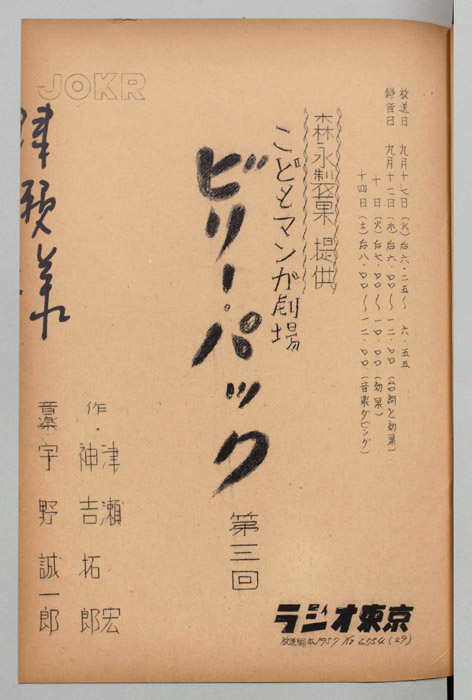 JOKR
放送日 九月十七日（火）后六・二五〜 六・五五
録音日 九月十一日（水）后六・〇〇〜一二・〇〇（台詞と効果）
十日（火）后七・〇〇〜一〇・〇〇（効果）
十四日（土）后八・〇〇〜一二・〇〇（音楽ダビング）
森永製菓 提供
こどもマンガ劇場
ビリー・パック
第三回
作・津瀬 宏
神吉拓郎
音楽 宇野誠一郎
ラジオ東京
放送台本1957 No 6554 (29)